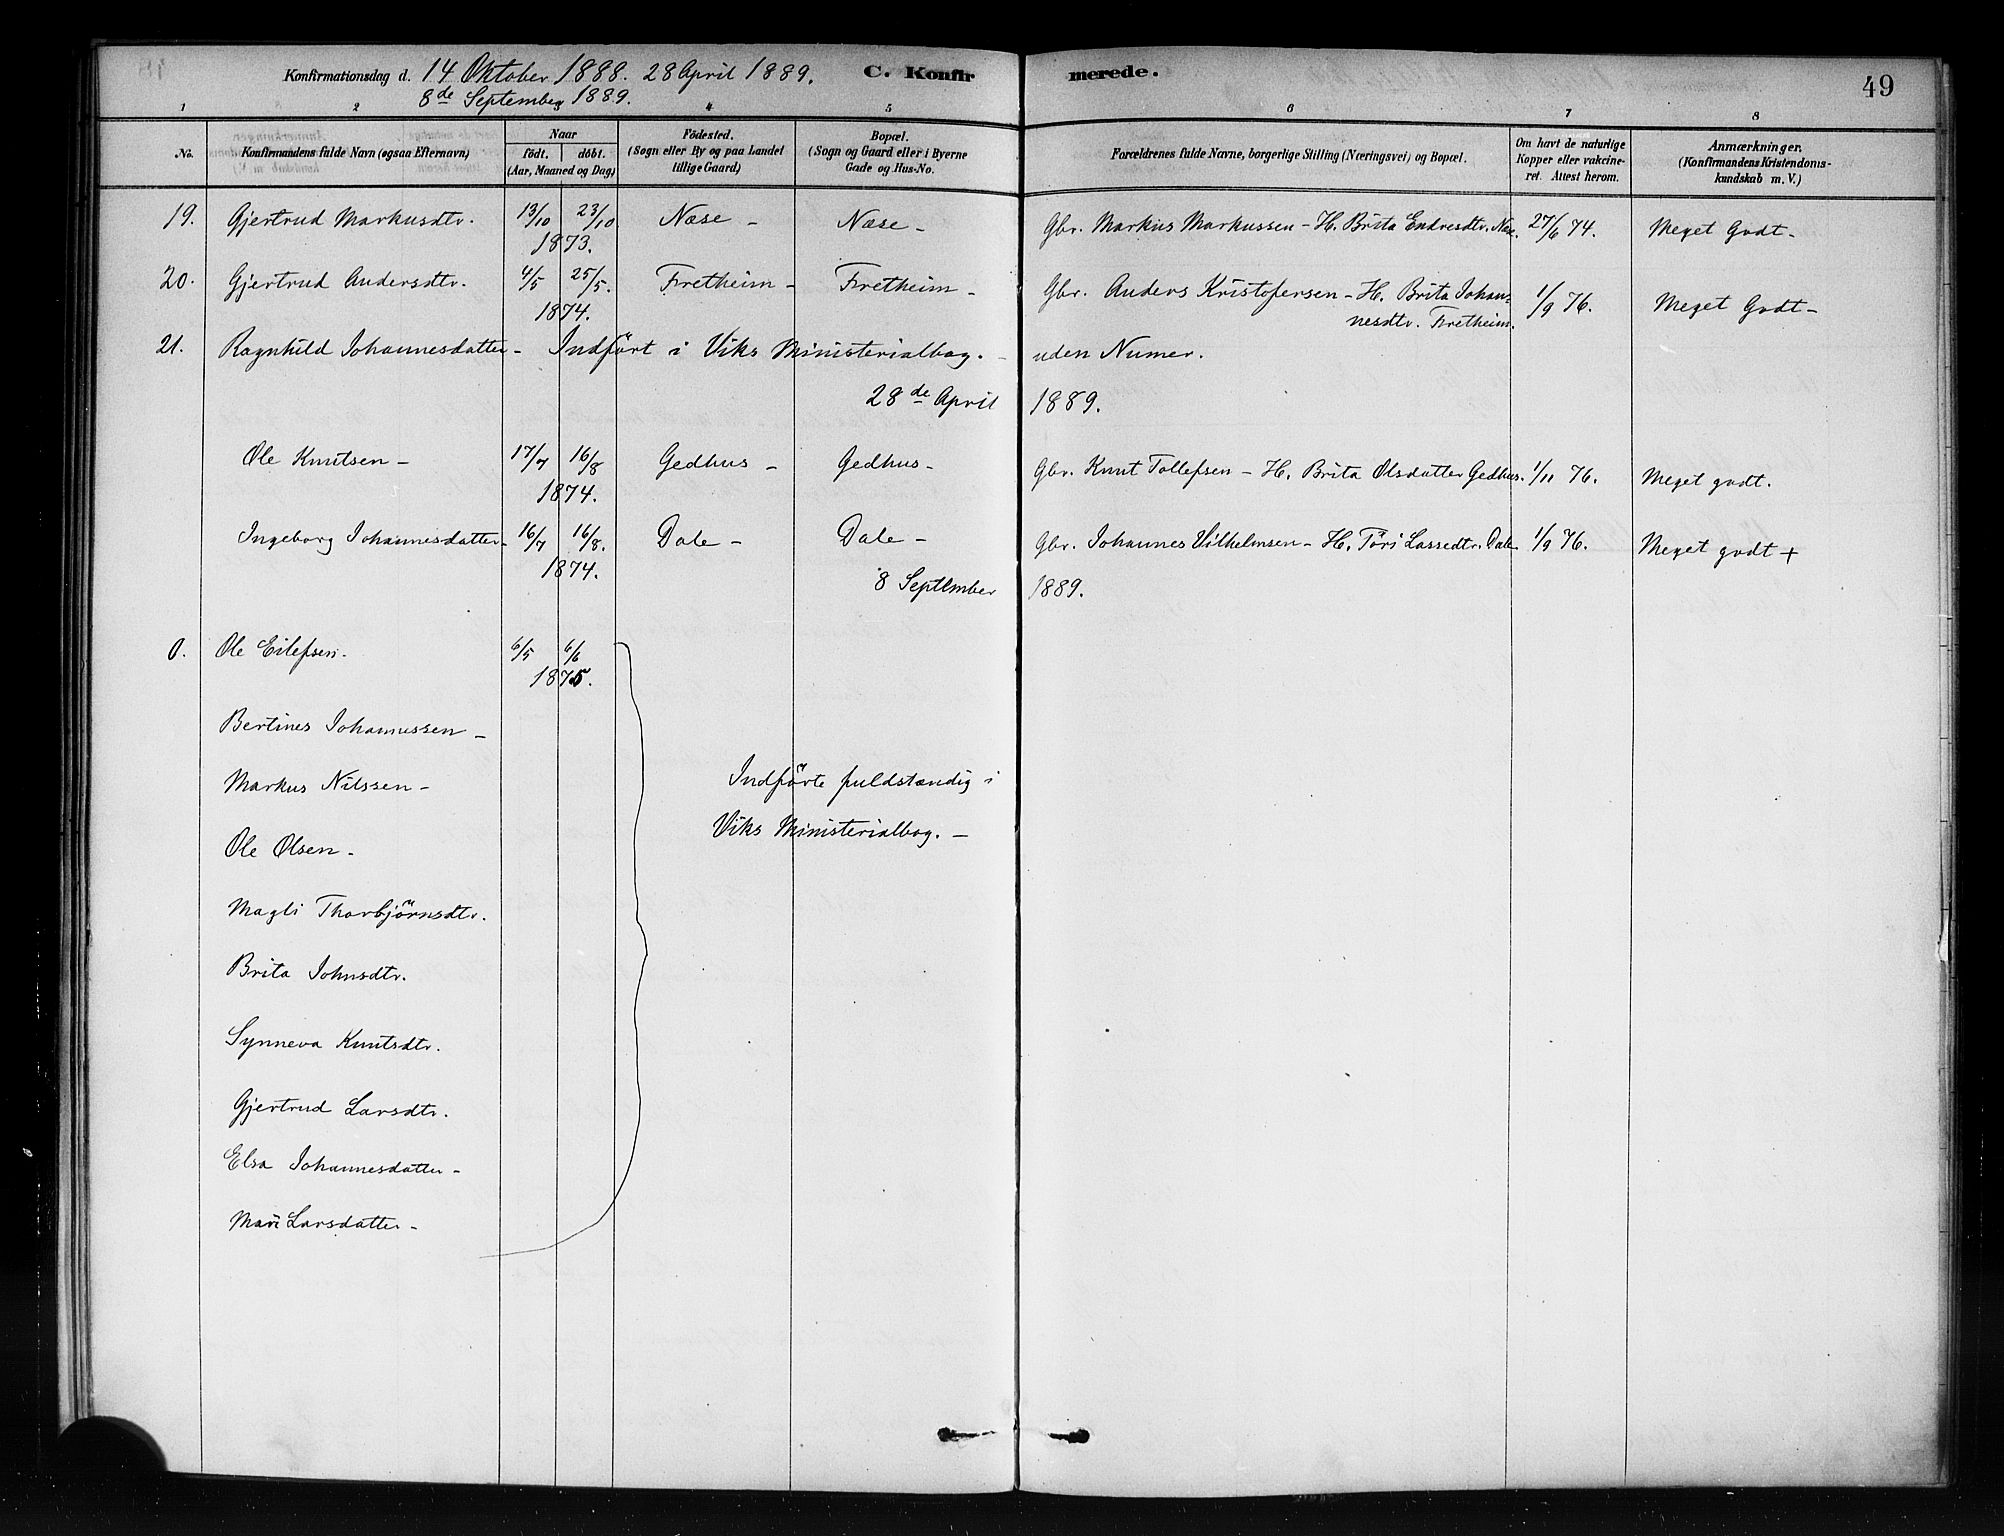 Konfirmationsdag d. 14 Oktober 1888. 28 April 1889. C. Konfirmerede. 49
8de September 1889.
1 2 3 4 5 6 7 8
No. Konfirmandens fulde Navn (ogsaa Efternavn) Naar födt. döbt. (Aar, Maaned og Dag) Födested. (Sogn eller By og paa Landet tillige Gaard) Bopæl. (Sogn og Gaard eller i Byerne Gade og Hus-No. Forældrenes fulde Navne, borgerlige Stilling (Næringsvei) og Bopæl. Om havt de naturlige Kopper eller vakcineret. Attest herom. Anmærkninger. (Konfirmandens Kristendomskundskab m. V.)
19. Gjertrud Markusdtr. 13/10 23/10 Næse - Næse - Gbr. Markus Markussen - H. Brita Endresdtr. Næse. 27/6 74. Meget Godt -
1873.
20. Gjertrud Andersdtr. 4/5 25/5. Fretheim - Fretheim - Gbr. Anders Kristofersen - H. Brita Johan-
nesdtr. Fretheim. 1/9 76. Meget Godt -
1874.
21. Ragnhild Johannesdatter - Indført i Viks Ministerialbog. - uden Numer.
28de April 1889.
Ole Knutsen - 17/7 16/8 Gedhus - Gedhus - Gbr. Knut Tollefsen - H. Brita Olsdatter Gedhus. 1/11 76. Meget godt.
1874.
Ingeborg Johannesdatter - 16/7 16/8. Dale - Dale - Gbr. Johannes Vilhelmsen - H. Töri Lassedtr. Dale 1/9 76. Meget godt +
1874.
8 September 1889.
0. Ole Eilefsen. 6/5 6/6
1875.
Bertines Johannessen -
Markus Nilssen -
Indförte fuldstændig i
Viks Ministerialbog. -
Ole Olsen -
Magli Thorbjörnsdtr.
Brita Johnsdtr.
Synneva Knutsdtr.
Gjertrud Larsdtr.
Elsa Johannesdatter -
Mari Larsdatter -